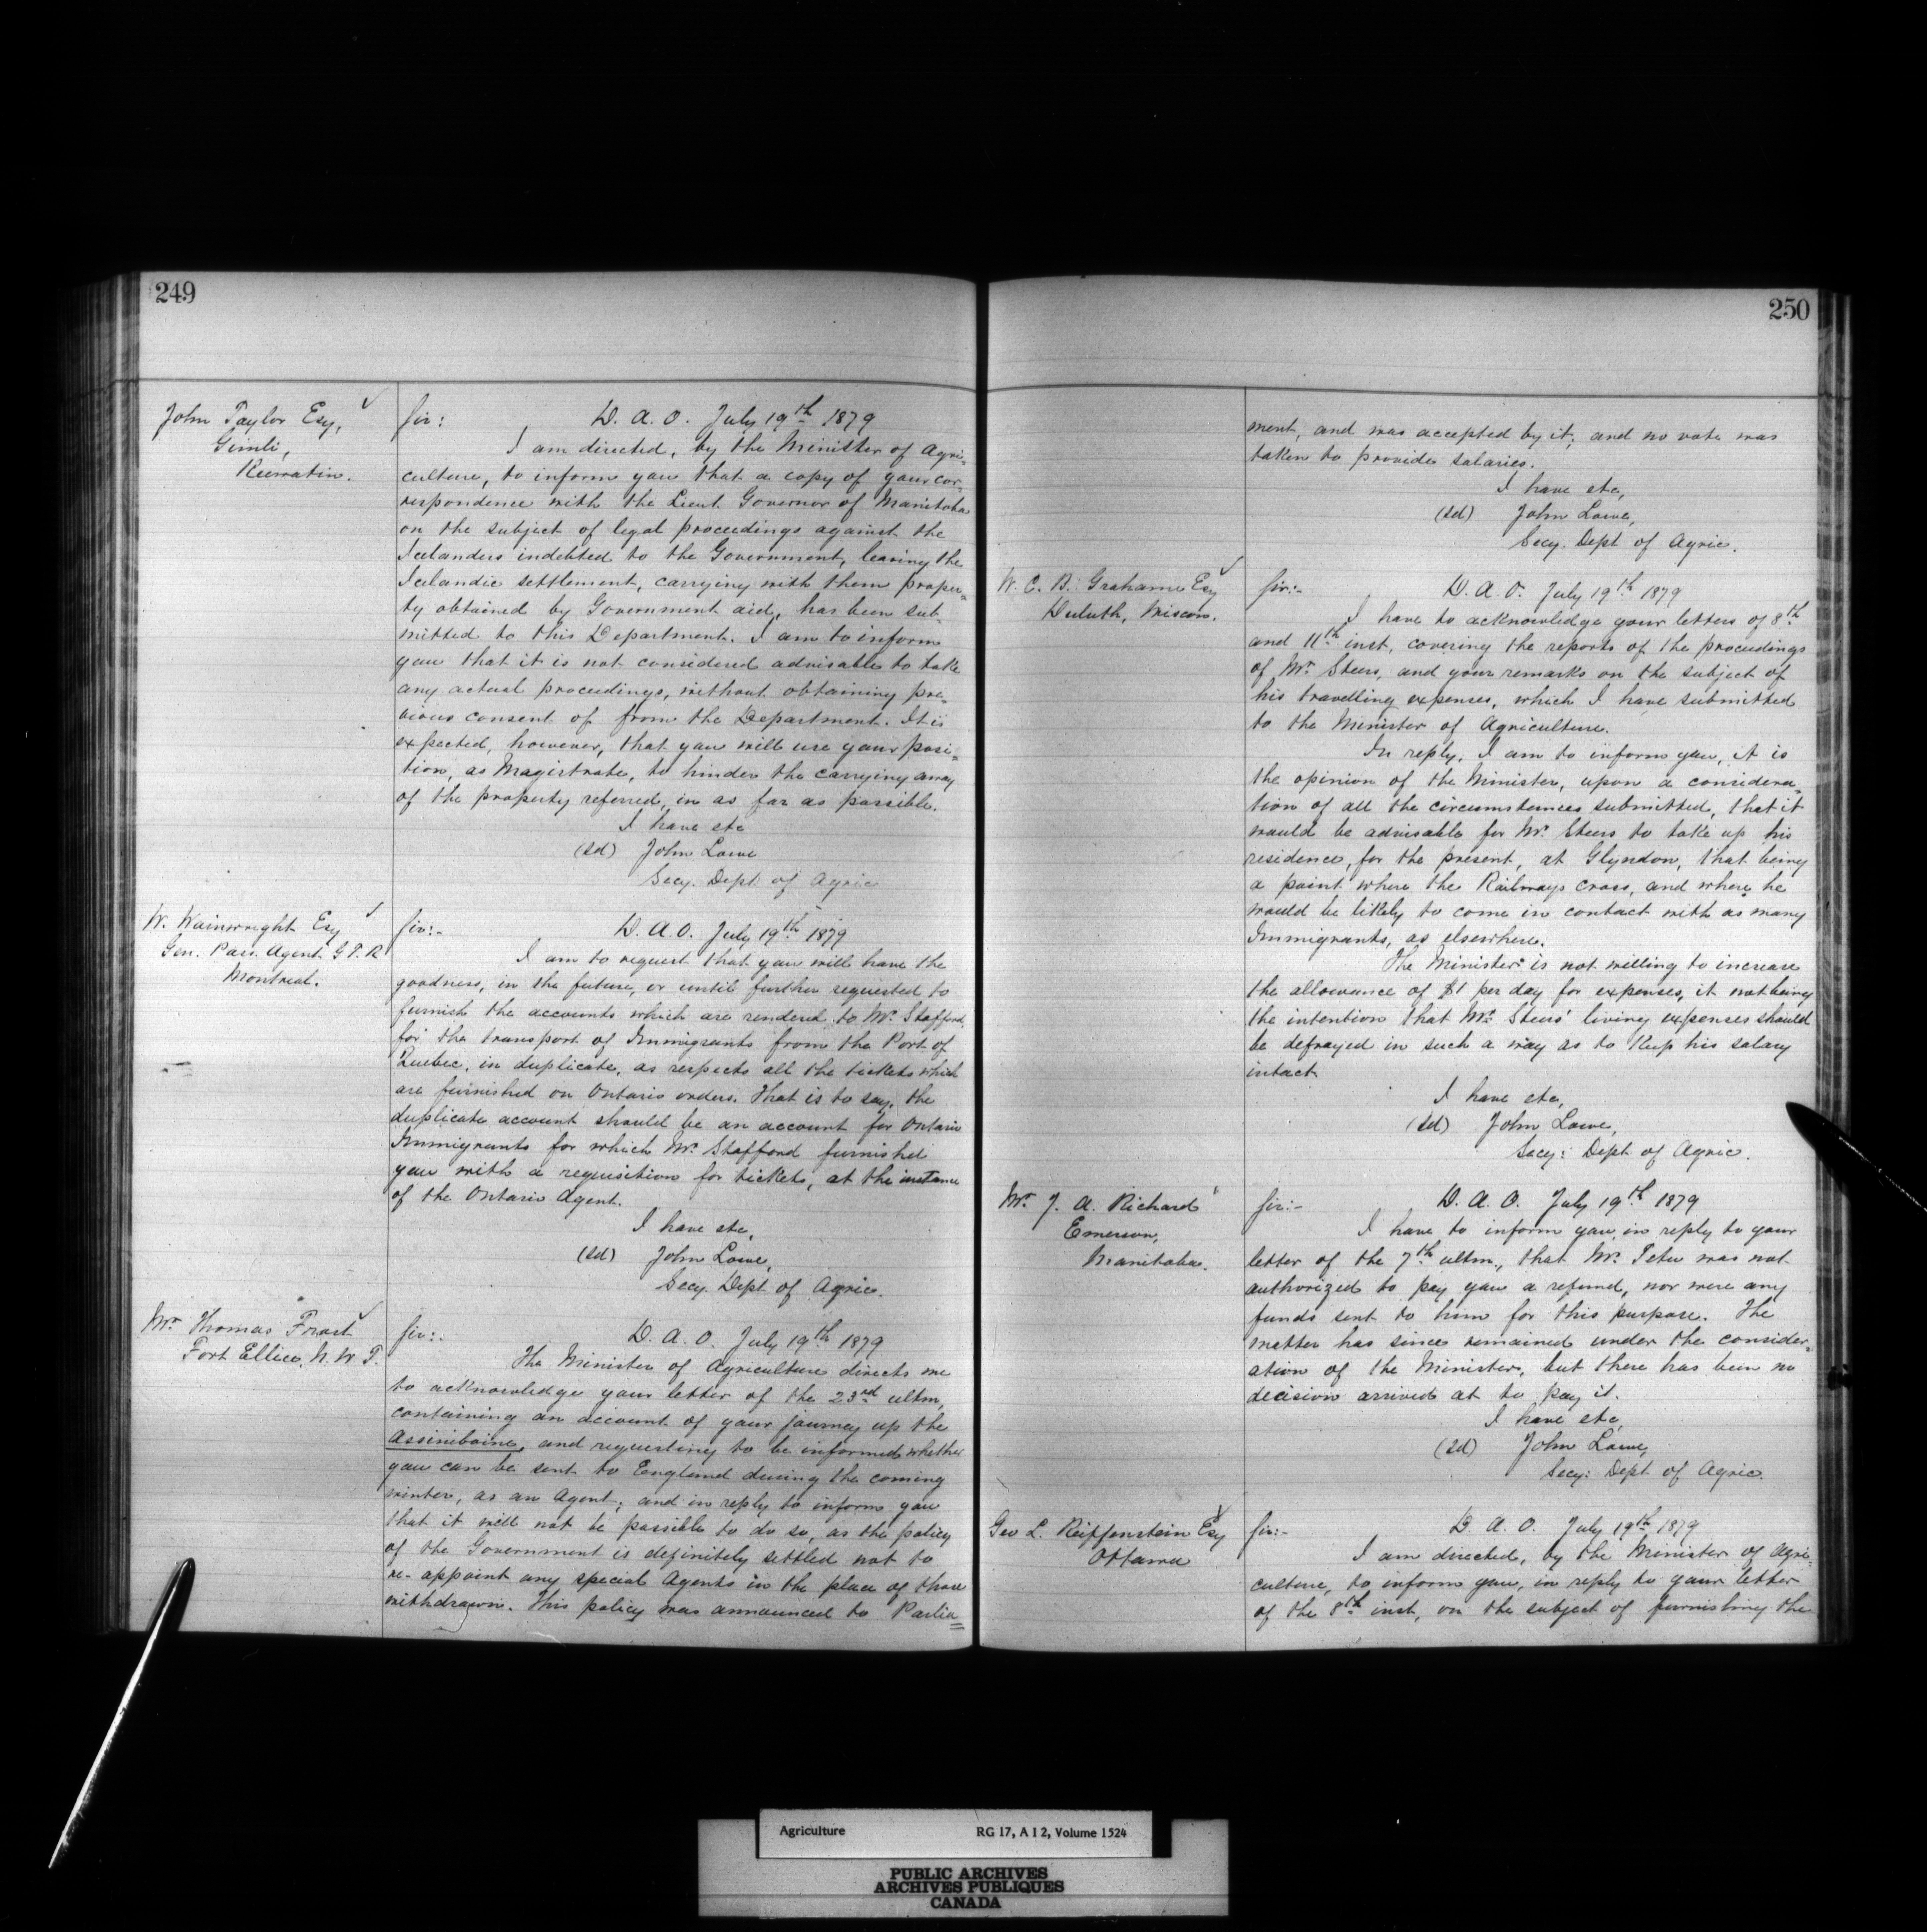 249
John Taylor Esq,
Gimli,
Keewatin.
Sir: D. A. O. July 19th 1879
I am directed, by the Minister of Agri=
culture, to inform you that a copy of your cor=
respondence with the Lieut Governor of Manitoba
on the subject of legal proceedings against the
Icelanders indebted to the Government, leaving the
Icelandic settlement, carrying with them proper=
ty obtained by Government aid, has been sub=
mitted to this Department. I am to inform
you that it is not considered advisable to take
any actual proceedings, without obtaining pre=
vious consent of from the Department. It is
expected, however, that you will use your posi=
tion, as Magistrate, to hinder the carrying away
of the property referred, in as far as possible.
I have etc
(sd) John Lowe
Secy. Dept of Agric
W. Wainwright Esq
Gen. Pass. Agent G T. R
Montreal.
Sir:- D. A. O. July 19th 1879
I am to request that you will have the
goodness, in the future, or until further requested to
furnish the accounts which are rendered to Mr. Stafford,
for the transport of Immigrants from the Port of
Quebec, in duplicate, as respects all the tickets which
are furnished on Ontario orders. That is to say, the
duplicate account should be an account for Ontario
Immigrants for which Mr. Stafford furnished
you with a requisition for tickets, at the instance
of the Ontario Agent.
I have etc,
(sd) John Lowe,
Secy. Dept of Agric.
Mr. Thomas Frost
Fort Ellice, N. W T.
Sir:- D. A. O. July 19th 1879
The Minister of Agriculture directs me
to acknowledge your letter of the 23rd ultm,
containing an account of your journey up the
Assiniboine, and requesting to be informed whether
you can be sent to England during the coming
winter, as an Agent; and in reply to inform you
that it will not be possible to do so, as the policy
of the Government is definitely settled not to
re-appoint any special Agents in the place of those
withdrawn. This policy was announced to Parlia=
250
ment, and was accepted by it; and no vote was
taken to provide salaries.
I have etc,
(sd) John Lowe,
Secy. Dept of Agric.
W. C. B. Grahame Esq
Duluth, Miscon.
Sir:- D. A. O. July 19th 1879
I have to acknowledge your letters of 8th
and 11th inst, covering the reports of the proceedings
of Mr. Steers, and your remarks on the subject of
his travelling expenses, which I have submitted
to the Minister of Agriculture.
In reply, I am to inform you, it is
the opinion of the Minister, upon a considera=
tion of all the circumstances submitted, that it
would be advisable for Mr. Steers to take up his
residence, for the present, at Glyndon, that being
a point where the Railways cross, and where he
would be likely to come in contact with as many
Immigrants, as elsewhere.
The Minister is not willing to increase
the allowance of $1 per day for expenses, it not being
the intention that Mr. Steers' living expenses should
be defrayed in such a way as to keep his salary
intact
I have etc,
(sd) John Lowe,
Secy: Dept of Agric.
Mr. J. A. Richard
Emerson,
Manitoba.
Sir:- D. A. O. July 19th 1879
I have to inform you, in reply to your
letter of the 7th ultm., that Mr. Tetu was not
authorized to pay you a refund, nor were any
funds sent to him for this purpose. The
matter has since remained under the consider=
ation of the Minister, but there has been no
decision arrived at to pay it.
I have etc,
(sd) John Lowe,
Secy: Dept of Agric.
Geo L. Reiffenstein Esq
Ottawa
Sir:- D. A. O. July 19th 1879
I am directed, by the Minister of Agri=
culture, to inform you, in reply to your letter
of the 8th inst, on the subject of furnishing the
Agriculture RG 17, A I 2, Volume 1524
PUBLIC ARCHIVES
ARCHIVES PUBLIQUES
CANADA